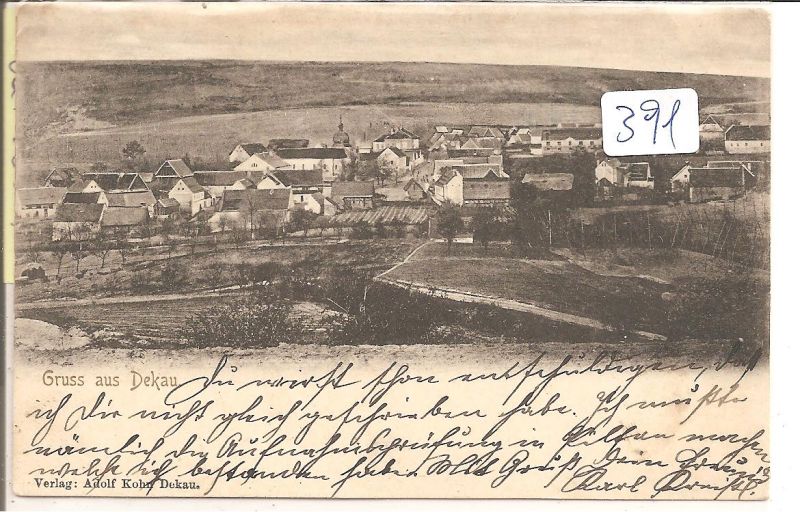 391
Gruss aus Dekau
Du wirst schon entschuldigen, daß
ich Dir nicht gleich geschrieben habe. Ich mußte
nämlich die Aufnahmsprüfung in machen
welche ich bestanden habe. Mit Gruß Dein Freund
Karl
Verlag: Adolf Kohn Dekau.